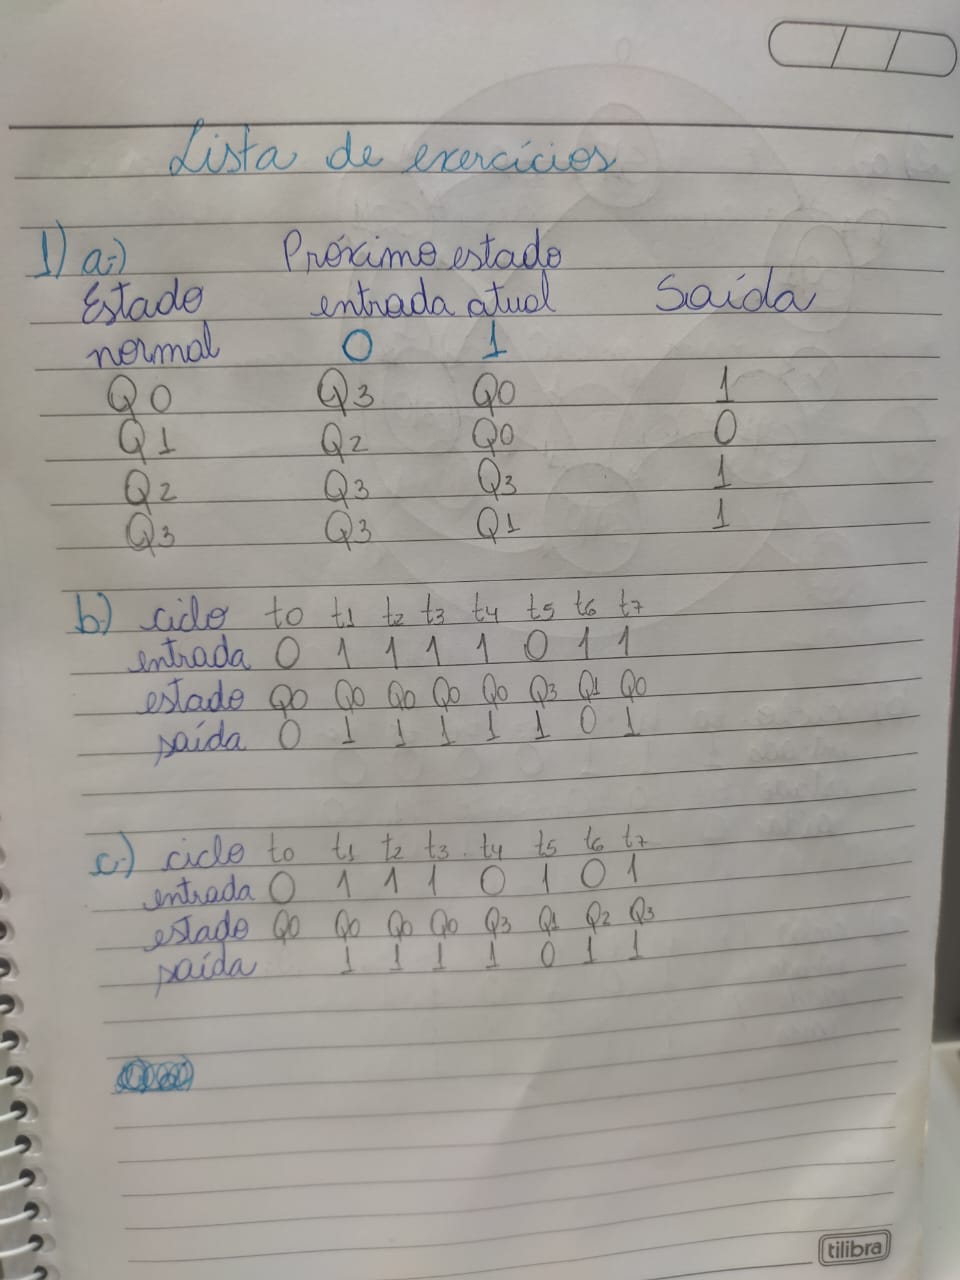 Lista de exercícios
1) a-) Próximo estado
Estado entrada atual Saída
normal 0 1
Q0 Q3 Q0 1
Q1 Q2 Q0 0
Q2 Q3 Q3 1
Q3 Q3 Q1 1
b-) ciclo t0 t1 t2 t3 t4 t5 t6 t7
entrada 0 1 1 1 1 0 1 1
estado Q0 Q0 Q0 Q0 Q0 Q3 Q1 Q0
saída 0 1 1 1 1 1 0 1
c-) ciclo t0 t1 t2 t3 t4 t5 t6 t7
entrada 0 1 1 1 0 1 0 1
estado Q0 Q0 Q0 Q0 Q3 Q1 Q2 Q3
saída 1 1 1 1 0 1 1
tilibra